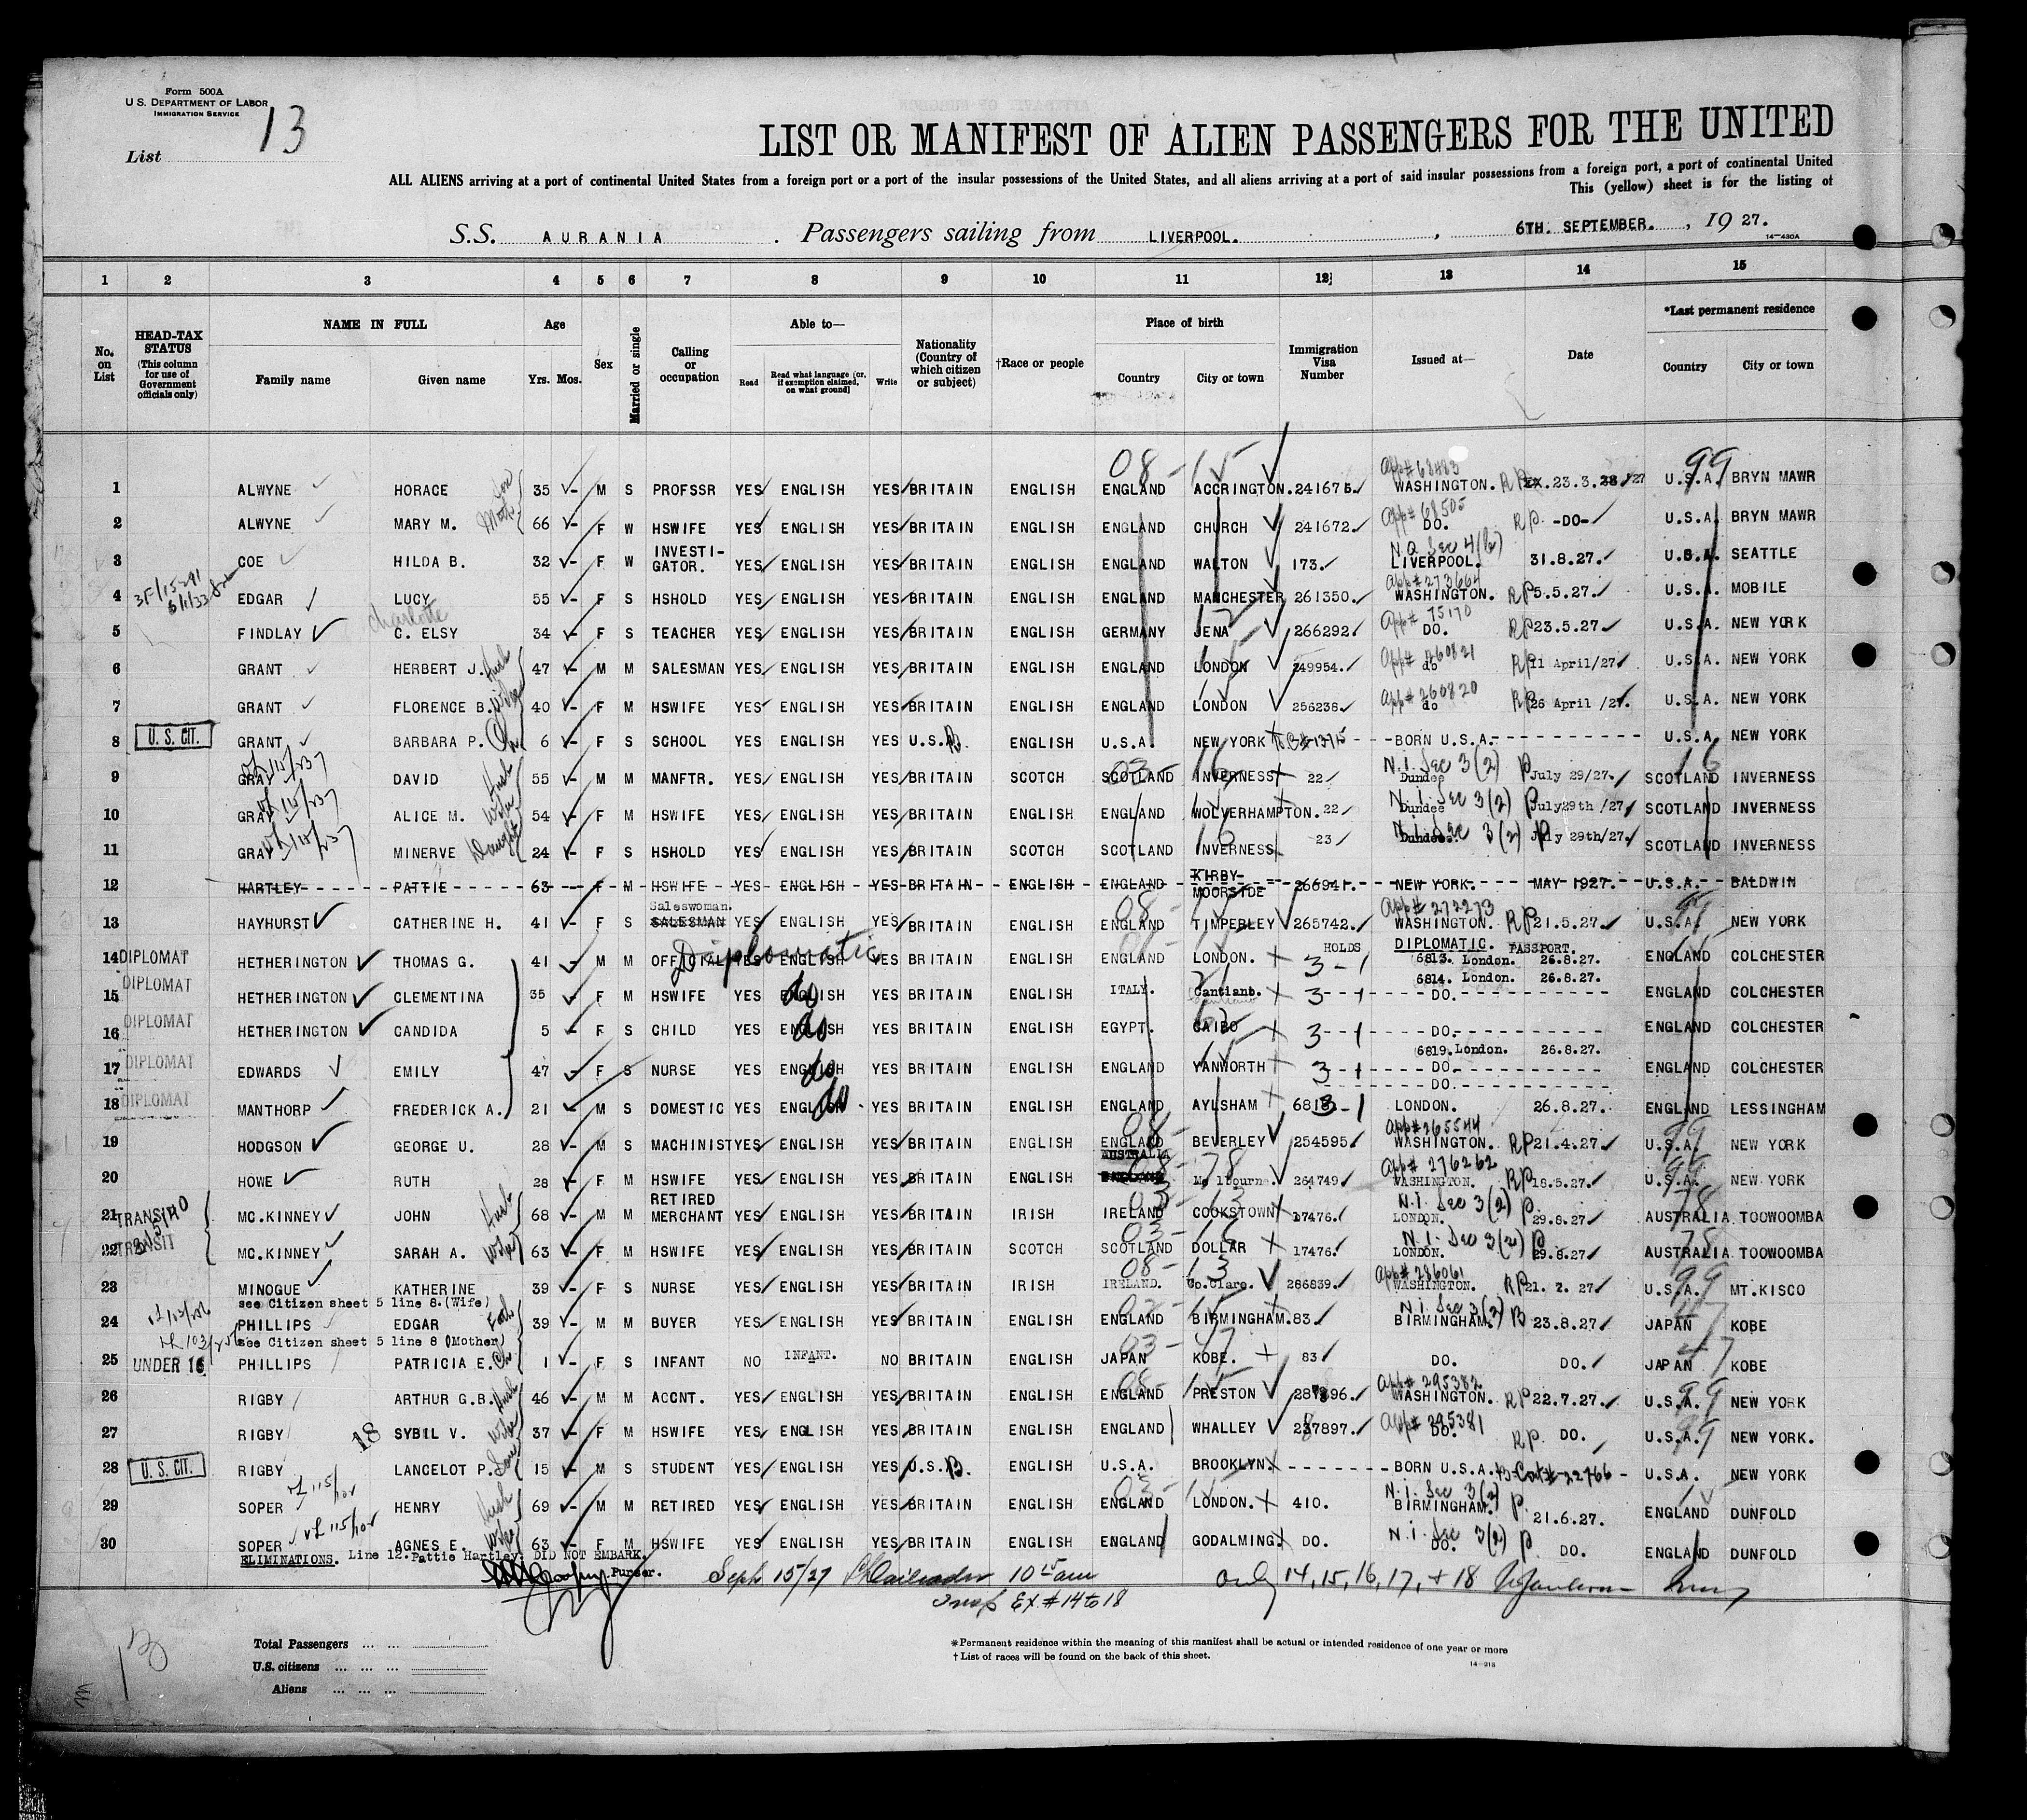 Form 500A
U.S. DEPARTMENT OF LABOR
IMMIGRATION SERVICE
List 13
LIST OR MANIFEST OF ALIEN PASSENGERS FOR THE UNITED
ALL ALIENS arriving at a port of continental United States from a foreign port or a port of the insular possessions of the United States, and all aliens arriving at a port of said insular possessions from a foreign port, a port of continental United
This (yellow) sheet is for the listing of
S.S. AURANIA. Passengers sailing from LIVERPOOL., 6TH. SEPTEMBER., 19 27.
14-430A
1 2 3 4 5 6 7 8 9 10 11 12 13 14 15
No. on List HEAD-TAX STATUS (This column for use of Government officials only) NAME IN FULL Family name Given name Age Yrs. Mos. Sex Married or single Calling or occupation Able to— Read Read what language [or, if exemption claimed, on what ground] Write Nationality (Country of which citizen or subject) †Race or people Place of birth Country City or town Immigration Visa Number Issued at— Date *Last permanent residence Country City or town
08 - 15 App# 68483 99
1 ALWYNE HORACE 35 - M S PROFSSR YES ENGLISH YES BRITAIN ENGLISH ENGLAND ACCRINGTON. 241675. WASHINGTON. 23.3. 27 U.S.A. BRYN MAWR
2 ALWYNE MARY M. 66 - F W HSWIFE YES ENGLISH YES BRITAIN ENGLISH ENGLAND CHURCH 241672. App# 68505 DO. RP. -DO- U.S.A. BRYN MAWR
3 COE HILDA B. 32 - F W INVESTI-GATOR. YES ENGLISH YES BRITAIN ENGLISH ENGLAND WALTON 173. N.Q Sec 4(b) LIVERPOOL. 31.8.27. U.S.A. SEATTLE
4 EDGAR LUCY 55 - F S HSHOLD YES ENGLISH YES BRITAIN ENGLISH ENGLAND MANCHESTER 261350. App# 273664 WASHINGTON. RP 5.5.27. U.S.A. MOBILE
Charlotte
5 FINDLAY C. ELSY 34 - F S TEACHER YES ENGLISH YES BRITAIN ENGLISH GERMANY JENA 266292. App# 75170 DO. RP 23.5.27 U.S.A. NEW YORK
6 GRANT HERBERT J. Husb 47 - M M SALESMAN YES ENGLISH YES BRITAIN ENGLISH ENGLAND LONDON 249954. App# 260821 do RP 11 April/27 U.S.A. NEW YORK
7 GRANT FLORENCE B. Wife 40 - F M HSWIFE YES ENGLISH YES BRITAIN ENGLISH ENGLAND LONDON 256238. App# 260820 do RP 26 April /27. U.S.A. NEW YORK
8 U.S. CIT. GRANT BARBARA P. Ch 6 - F S SCHOOL YES ENGLISH YES U.S.A. ENGLISH U.S.A. NEW YORK - BORN U.S.A. - U.S.A. NEW YORK
9 GRAY DAVID Husb 55 - M M MANFTR. YES ENGLISH YES BRITAIN SCOTCH SCOTLAND INVERNESS 22 N.I. Sec 3(2) Dundee P July 29/27. SCOTLAND INVERNESS
10 GRAY ALICE M. Wife 54 - F M HSWIFE YES ENGLISH YES BRITAIN ENGLISH ENGLAND WOLVERHAMPTON. 22 N.I. Sec 3(2) Dundee P July 29th /27 SCOTLAND INVERNESS
11 GRAY MINERVE Daught 24 - F S HSHOLD YES ENGLISH YES BRITAIN SCOTCH SCOTLAND INVERNESS 23 N.I. Sec 3(2) Dundee. P July 29th/27. SCOTLAND INVERNESS
12 HARTLEY PATTIE 63 - F M HSWIFE YES ENGLISH YES BRITAIN ENGLISH ENGLAND KIRBY-MOORSIDE 266941. NEW YORK. MAY 1927. U.S.A. BALDWIN
13 HAYHURST CATHERINE H. 41 - F S Saleswoman. SALESMAN YES ENGLISH YES BRITAIN ENGLISH ENGLAND TIMPERLEY 265742. App# 272273 WASHINGTON. RP 21.5.27. U.S.A. NEW YORK
14 DIPLOMAT HETHERINGTON THOMAS G. 41 - M M OFFICIAL Diplomatic YES ENGLISH YES BRITAIN ENGLISH ENGLAND LONDON. HOLDS 3-1 DIPLOMATIC. PASSPORT. 6813. London. 26.8.27. ENGLAND COLCHESTER
15 DIPLOMAT HETHERINGTON CLEMENTINA 35 - F M HSWIFE YES ENGLISH do YES BRITAIN ENGLISH ITALY. Cantiano. 3-1 6814. London. 26.8.27. DO. ENGLAND COLCHESTER
16 DIPLOMAT HETHERINGTON CANDIDA 5 - F S CHILD YES ENGLISH do YES BRITAIN ENGLISH EGYPT. CAIRO 3-1 DO. ENGLAND COLCHESTER
17 DIPLOMAT EDWARDS EMILY 47 - F S NURSE YES ENGLISH do YES BRITAIN ENGLISH ENGLAND YANWORTH 3-1 6819. London. 26.8.27. DO. ENGLAND COLCHESTER
DO.
18 DIPLOMAT MANTHORP FREDERICK A. 21 - M S DOMESTIC YES ENGLISH do YES BRITAIN ENGLISH ENGLAND AYLSHAM 3-1 LONDON. 26.8.27. ENGLAND LESSINGHAM
19 HODGSON GEORGE U. 28 - M S MACHINIST YES ENGLISH YES BRITAIN ENGLISH ENGLAND BEVERLEY 254595. App# 265544 WASHINGTON. RP 21.4.27. U.S.A. NEW YORK
20 HOWE RUTH 28 - F M HSWIFE YES ENGLISH YES BRITAIN ENGLISH AUSTRALIA Melbourne. 264749 App# 276262 WASHINGTON. RP 18.5.27. U.S.A. NEW YORK
21 TRANSIT MC.KINNEY JOHN Husb 68 - M M RETIRED MERCHANT YES ENGLISH YES BRITAIN IRISH IRELAND COOKSTOWN 17476. N.I. Sec 3(2) P. LONDON. 29.8.27. AUSTRALIA TOOWOOMBA
22 TRANSIT MC.KINNEY SARAH A. Wife 63 - F M HSWIFE YES ENGLISH YES BRITAIN SCOTCH SCOTLAND DOLLAR 17476. N.I. Sec 3(2) P LONDON. 29.8.27 AUSTRALIA TOOWOOMBA
23 MINOGUE KATHERINE 39 - F S NURSE YES ENGLISH YES BRITAIN IRISH IRELAND. Co.Clare. 286839. App# 286061 WASHINGTON. RP 21. 2. 27 U.S.A. MT.KISCO
see Citizen sheet 5 line 8.(Wife)
24 PHILLIPS EDGAR Fath 39 - M M BUYER YES ENGLISH YES BRITAIN ENGLISH ENGLAND BIRMINGHAM. 83. N.I. Sec 3(2) B BIRMINGHAM. 23.8.27. JAPAN KOBE
see Citizen sheet 5 line 8 (Mother)
25 UNDER 16 PHILLIPS PATRICIA E. Ch. 1 - F S INFANT NO INFANT. NO BRITAIN ENGLISH JAPAN KOBE. 83 DO. DO. JAPAN KOBE
26 RIGBY ARTHUR G.B. Husb 46 - M M ACCNT. YES ENGLISH YES BRITAIN ENGLISH ENGLAND PRESTON 287896. App# 295382 WASHINGTON. RP 22.7.27. U.S.A. NEW YORK
27 RIGBY 18 SYBIL V. Wife 37 - F M HSWIFE YES ENGLISH YES BRITAIN ENGLISH ENGLAND WHALLEY 287897. App# 295381 DO. RP. DO. U.S.A. NEW YORK.
28 U.S. CIT. RIGBY LANCELOT P. Son 15 - M S STUDENT YES ENGLISH YES U.S.A. ENGLISH U.S.A. BROOKLYN. - BORN U.S.A. B-Cert#-22766 - U.S.A. NEW YORK
29 SOPER HENRY Husb 69 - M M RETIRED YES ENGLISH YES BRITAIN ENGLISH ENGLAND LONDON. 410. N.I. Sec 3(2) P. BIRMINGHAM. 21.6.27. ENGLAND DUNFOLD
30 SOPER AGNES E. Wife 63 - F M HSWIFE YES ENGLISH YES BRITAIN ENGLISH ENGLAND GODALMING. DO. N.I. Sec 3(2) P. DO. DO. ENGLAND DUNFOLD
ELIMINATIONS. Line 12. Pattie Hartley. DID NOT EMBARK.
Purser. Sept 15/27 10 15 am only 14, 15, 16, 17, + 18
Insp Ex. #14 to 18
Total Passengers ... ...
U.S. citizens ... ... ...
Aliens ... ... ...
*Permanent residence within the meaning of this manifest shall be actual or intended residence of one year or more
† List of races will be found on the back of this sheet.
14-913
13